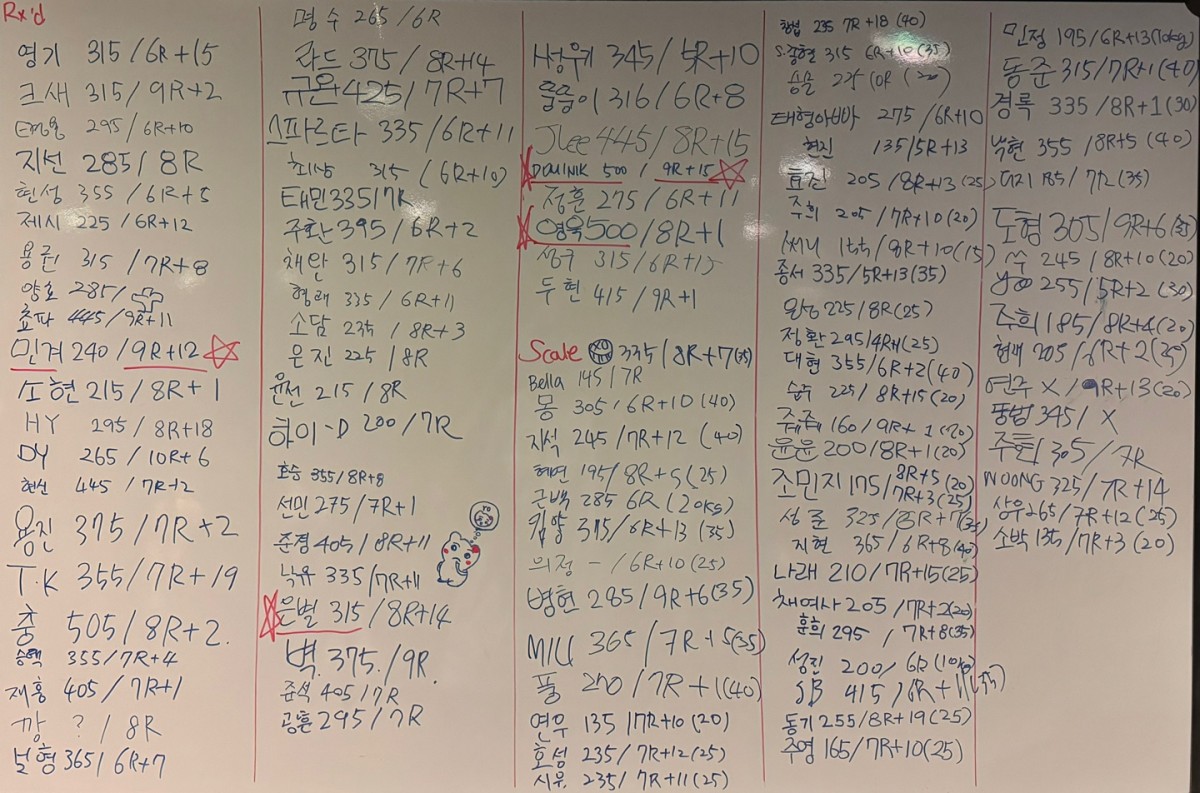 Rx'd
영기 315/6R+15
크새 315/9R+2
295/6R+10
지선 285/8R
현성 355/6R+5
제시 225/6R+12
용권 315/7R+8
양호 285/
쵸파 445/9R+11
민겨 240/9R+12
소현 215/8R+1
HY 295/8R+18
DY 265/10R+6
현신 445/7R+2
용진 375/7R+2
T.K 355/7R+19
춤 505/8R+2.
승택 355/7R+4
재홍 405/7R+1
깡 ?/8R
보형 365/6R+7
명수 265/6R
라드 375/8R+14
규온 425/7R+7
스파르타 335/6R+11
최상 315 (6R+10)
태민 335/7R
주환 395/6R+2
채완 315/7R+6
형래 335/6R+11
소담 235/8R+3
은진 225/8R
윤선 215/8R
하이-D 200/7R
호승 355/8R+8
선민 275/7R+1
준경 405/8R+11
낙유 335/7R+11
은별 315/8R+14
벽. 375./9R.
준석 405/7R
공훈 295/7R
성위 345/5R+10
뭉뭉이 316/6R+8
JLee 445/8R+15
DOMINIK 500/9R+15
정훈 275/6R+11
영욱 500/8R+1
성구 315/6R+15
두현 415/9R+1
Scale 335/8R+7(35)
Bella 145/7R
몽 305/6R+10(40)
지석 245/7R+12 (40)
혜연 195/8R+5(25)
근백 285 6R (20KG)
킴양 375/6R+13 (35)
의정 -/6R+10(25)
병현 285/9R+6(35)
MIU 365/7R+5(35)
풀 270/7R+1(40)
연우 135/7R+10(20)
호성 235/7R+12(25)
시우. 235/7R+11(25)
235 7R+18(40)
S.중현 315 6R+10(35)
승윤 225
태형아빠 275/6R+10
현진 135/5R+13
205/8R+13(25)
주희 205/7R+10(20)
써니 155/8R+10(15)
종서 335/5R+13(35)
왕 225/8R(25)
정환 295/4R+1(25)
대협 355/6R+2(40)
승우 225/8R+15(20)
쥬쥬 160/9R+1(20)
윤윤 200/8R+1(20)
조민지 175/8R+5(20)
7R+3(25)
성준 325/8R+7(35)
지현 365/6R+8(40)
나래 210/7R+15(25)
채여사 205/7R+2(20)
훈희 295/7R+8(35)
성진 200/6R(10kg)
SB 415/6R+11(35)
동기 255/8R+19(25)
주영 165/7R+10(25)
민정 195/6R+13(10kg)
동준 315/7R+1(40)
경록 335/8R+1(30)
박현 355/8R+5 (40)
더지 185/7R(35)
도형 305/9R+6(35)
쑤 245/8R+10(20)
255/5R+2(30)
주희 185/8R+4(20)
형새 205/6R+2(35)
연주 X/9R+13(20)
동범 345/X
주톤 305/7R
WOONG 325/7R+14
상우 265/7R+12(25)
소박 135/7R+3(20)